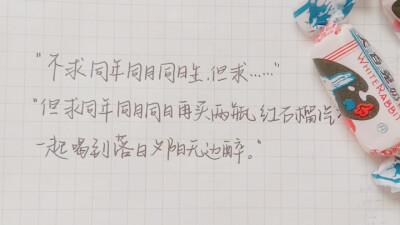 "不求同年同月同日生,但求……"
"但求同年同月同日再买两瓶红石榴汽
一起喝到落日夕阳无边醉。"
WHITE RABBIT